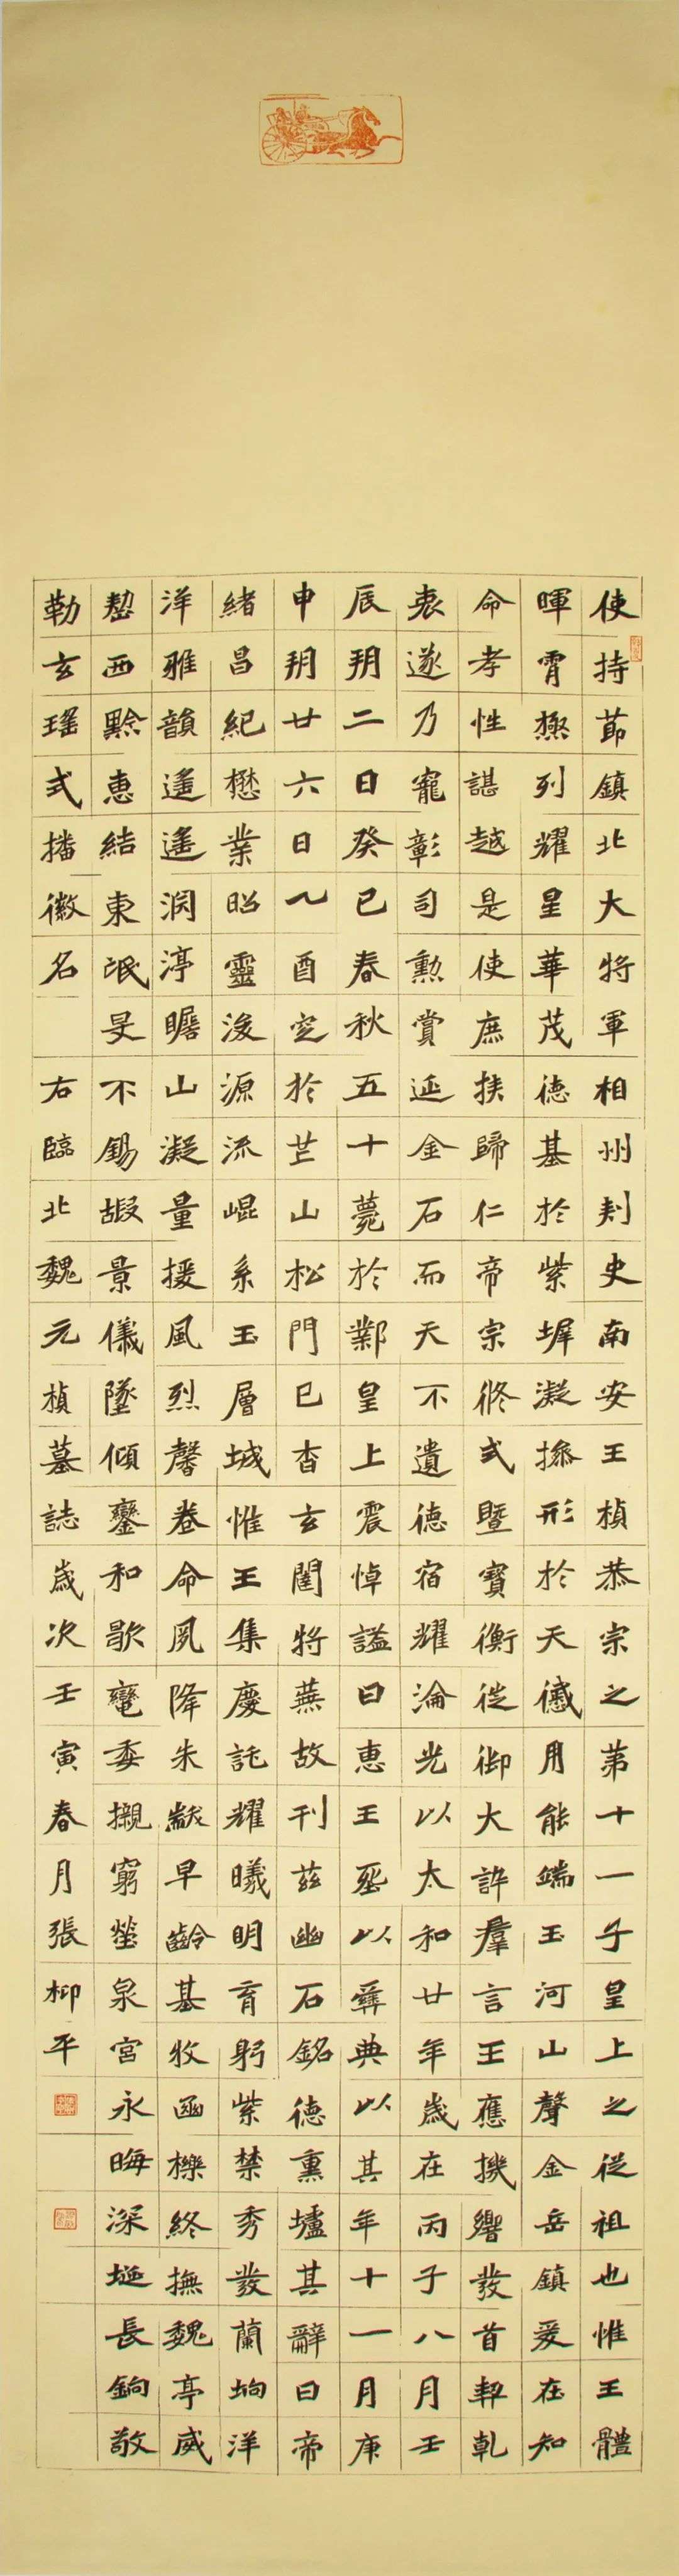 使持節鎮北大將軍相州刺史南安王楨恭宗之第十一子皇上之從祖也惟王體
暉霄極列耀星華茂德基於紫墀凝操形於天儀用能端玉河山聲金岳鎮爰在知
命孝性諶越是使庶族歸仁帝宗攸式暨寶衡徙御大訊羣言王應機響發首契乾
衷遂乃寵彰司勲賞延金石而天不遺德宿耀淪光以太和廿年歲在丙子八月壬
辰朔二日癸巳春秋五十薨於鄴皇上震悼謚曰惠王塟以彝典以其年十一月庚
申朔廿六日乙酉窆於芒山松門已杳玄闥將蕪故刊茲幽石銘德熏壚其辭曰帝
緒昌紀懋業昭靈浚源流崐系玉層城惟王集慶託耀曦明育躬紫禁秀發蘭坰洋
洋雅韻遥遥渕渟瞻山凝量援風烈馨卷命夙降朱黻早齡基牧函櫟終撫魏亭威
整西黔惠結東氓旻不錫嘏景儀墜傾鑾和歌電委櫬窮塋泉宮永晦深埏長鉤敬
勒玄瑤式播徽名 右臨北魏元楨墓誌歲次壬寅春月張柳平